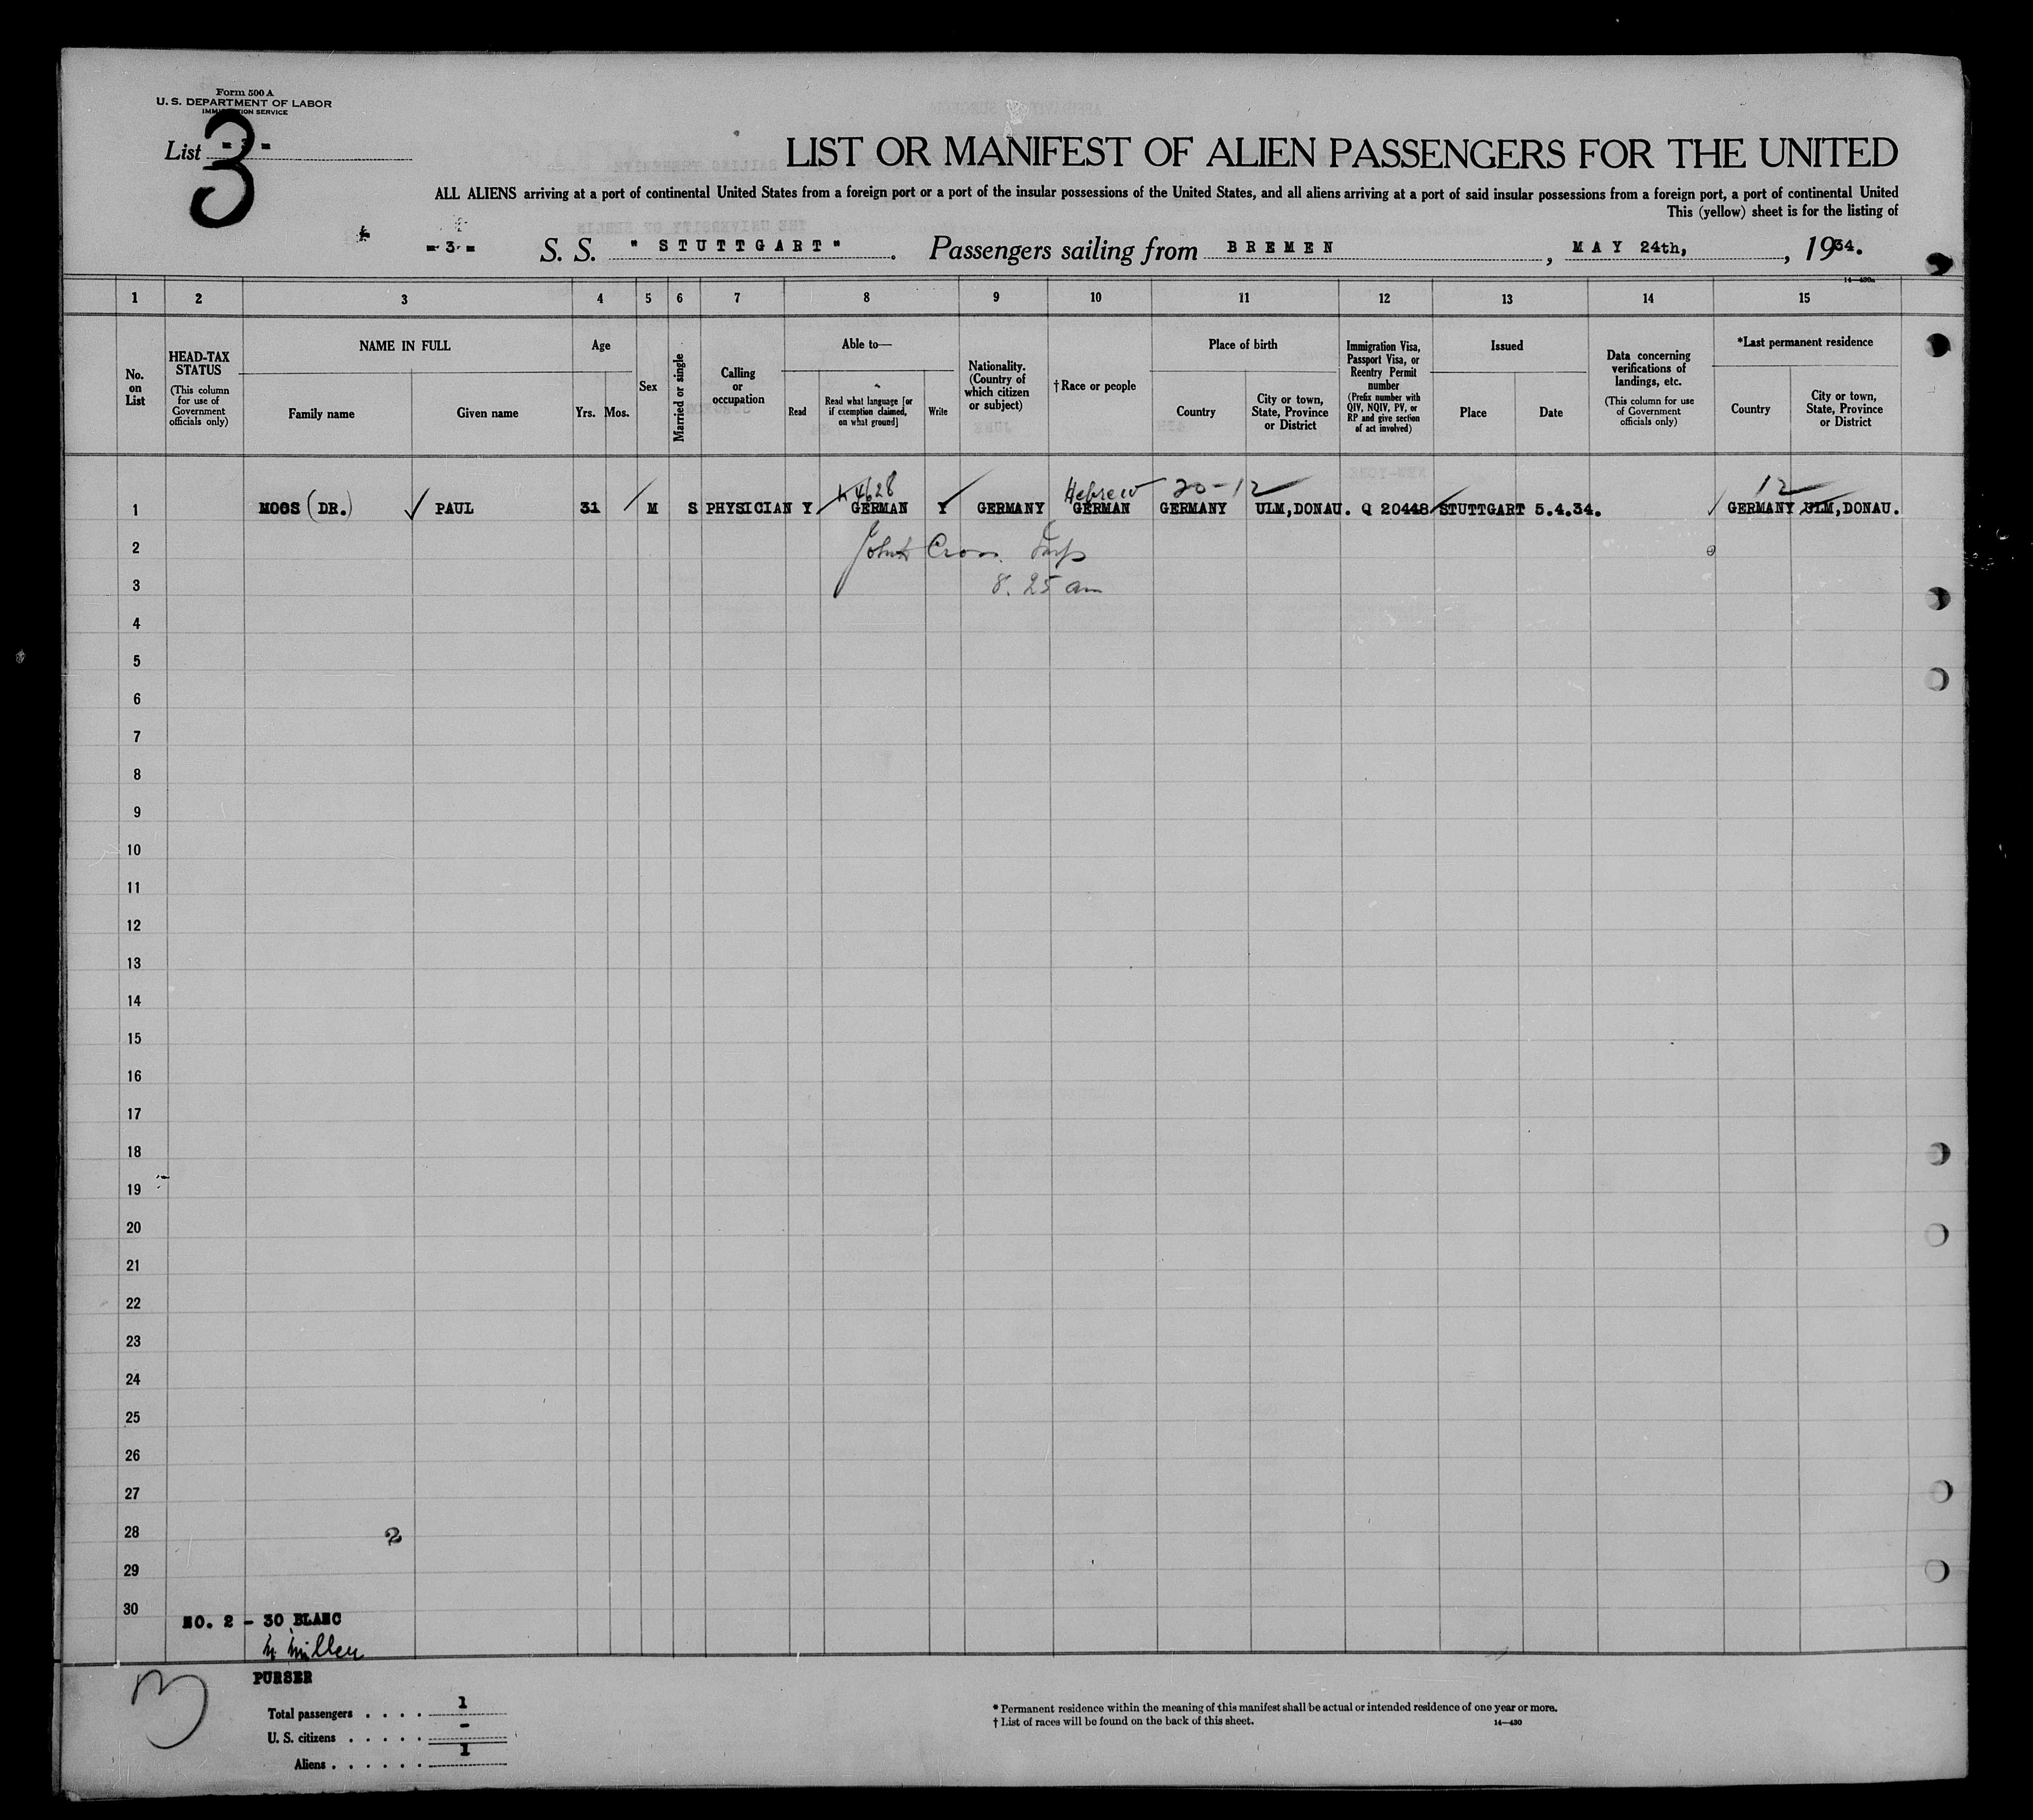 Form 500 A
U. S. DEPARTMENT OF LABOR
IMMIGRATION SERVICE
List - 3 -
3
LIST OR MANIFEST OF ALIEN PASSENGERS FOR THE UNITED
ALL ALIENS arriving at a port of continental United States from a foreign port or a port of the insular possessions of the United States, and all aliens arriving at a port of said insular possessions from a foreign port, a port of continental United
This (yellow) sheet is for the listing of
- 3 - S. S. " STUTTGART " . Passengers sailing from BREMEN , MAY 24th, , 1934.
14—430a
1 2 3 4 5 6 7 8 9 10 11 12 13 14 15
No. on List
HEAD-TAX STATUS (This column for use of Government officials only)
NAME IN FULL
Family name Given name
Age
Yrs. Mos.
Sex
Married or single
Calling or occupation
Able to—
Read Read what language [or if exemption claimed, on what ground] Write
Nationality. (Country of which citizen or subject)
†Race or people
Place of birth
Country City or town, State, Province or District
Immigration Visa, Passport Visa, or Reentry Permit number (Prefix number with QIV, NQIV, PV, or RP and give section of act involved)
Issued
Place Date
Data concerning verifications of landings, etc. (This column for use of Government officials only)
*Last permanent residence
Country City or town, State, Province or District
4628 Hebrew 20-12 12
1 MOOS (DR.) PAUL 31 M S PHYSICIAN Y GERMAN Y GERMANY GERMAN GERMANY ULM, DONAU. Q 20448 STUTTGART 5.4.34. GERMANY ULM, DONAU.
2 Cross Insp
3 8.25 am
4
5
6
7
8
9
10
11
12
13
14
15
16
17
18
19
20
21
22
23
24
25
26
27
28 2
29
30
NO. 2 - 30 BLANC
PURSER
3
Total passengers . . . . 1
U. S. citizens . . . . . -
Aliens . . . . . . 1
* Permanent residence within the meaning of this manifest shall be actual or intended residence of one year or more.
† List of races will be found on the back of this sheet. 14—430